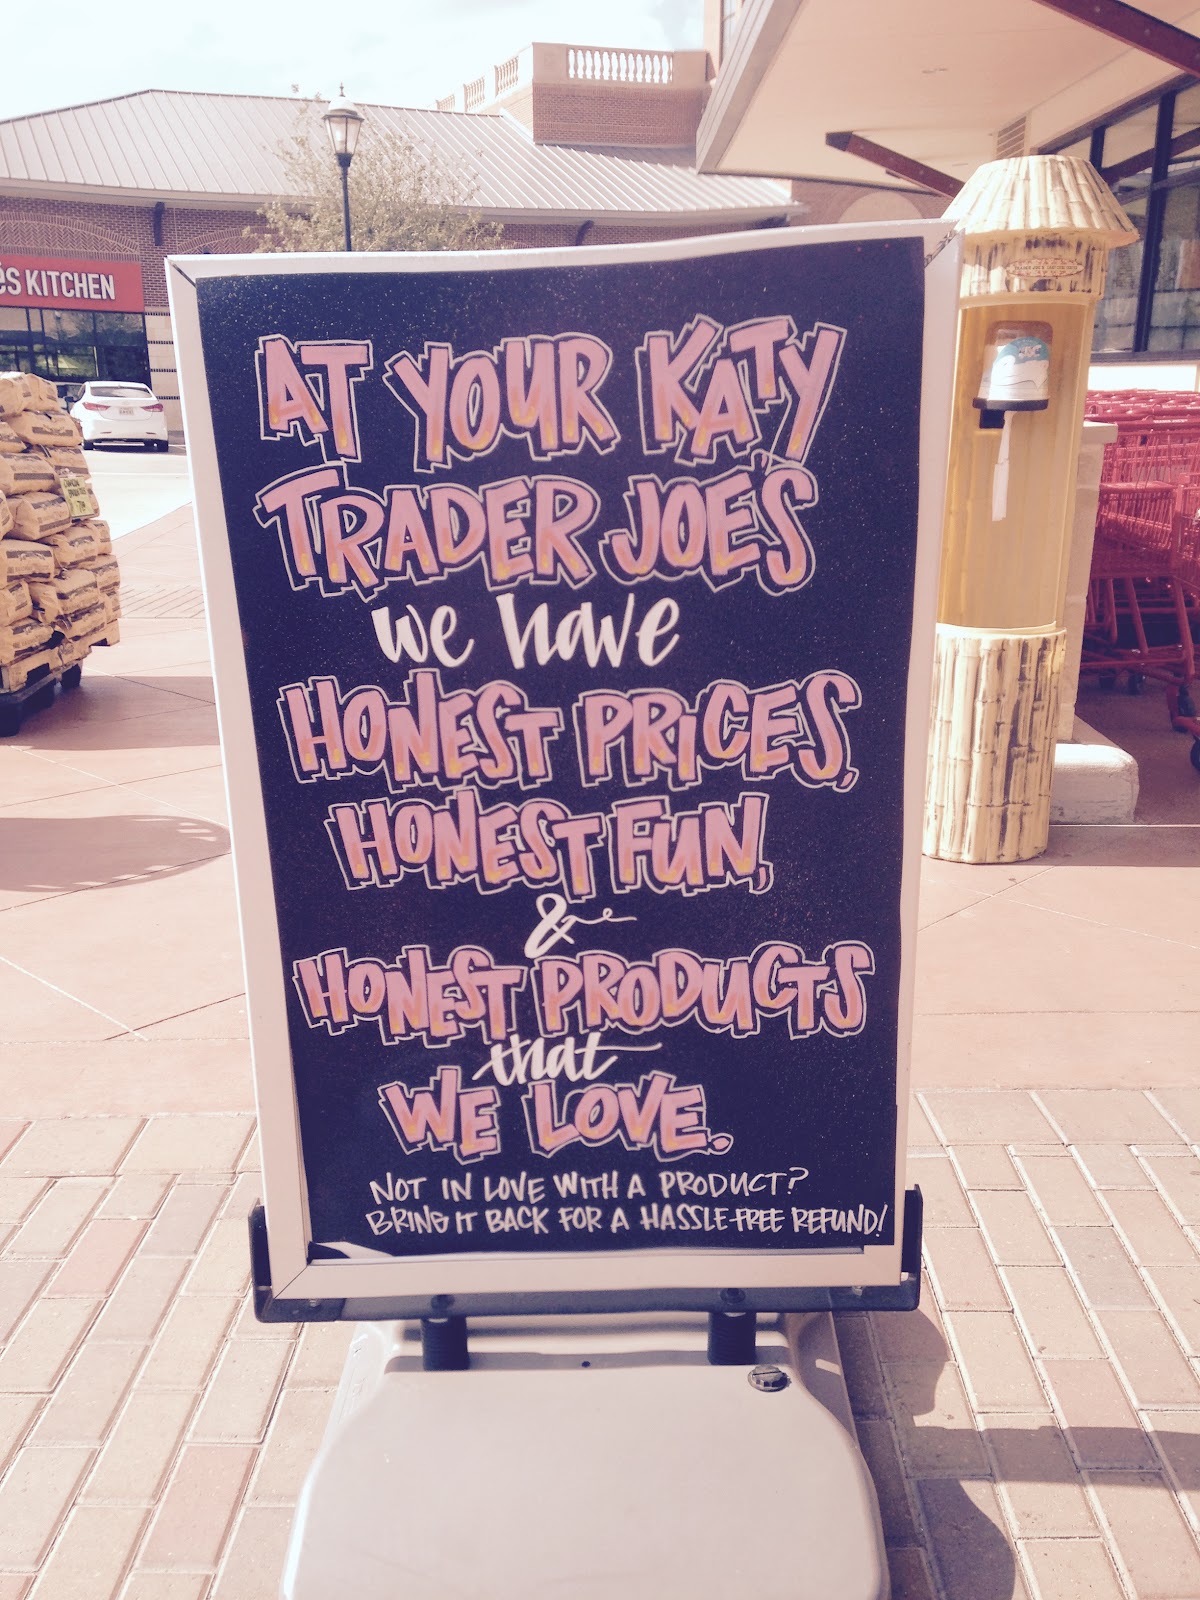 AT YOUR KATY
TRADER JOE'S
we have
HONEST PRICES,
HONEST FUN,
&
HONEST PRODUCTS
that
WE LOVE.
NOT IN LOVE WITH A PRODUCT?
BRING IT BACK FOR A HASSLE-FREE REFUND!
KITCHEN